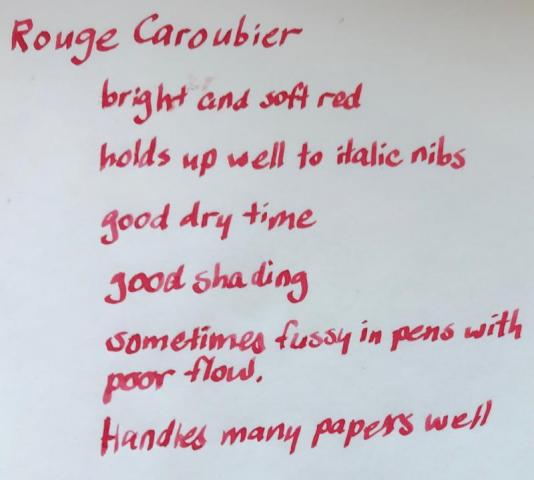 Rouge Caroubier
bright and soft red
holds up well to italic nibs
good dry time
good shading
sometimes fussy in pens with
poor flow.
Handles many papers well